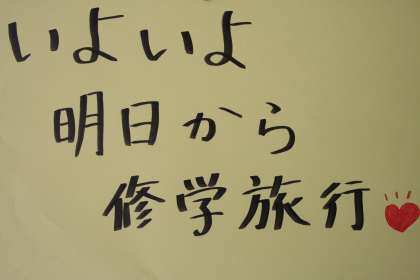 いよいよ
明日から
修学旅行